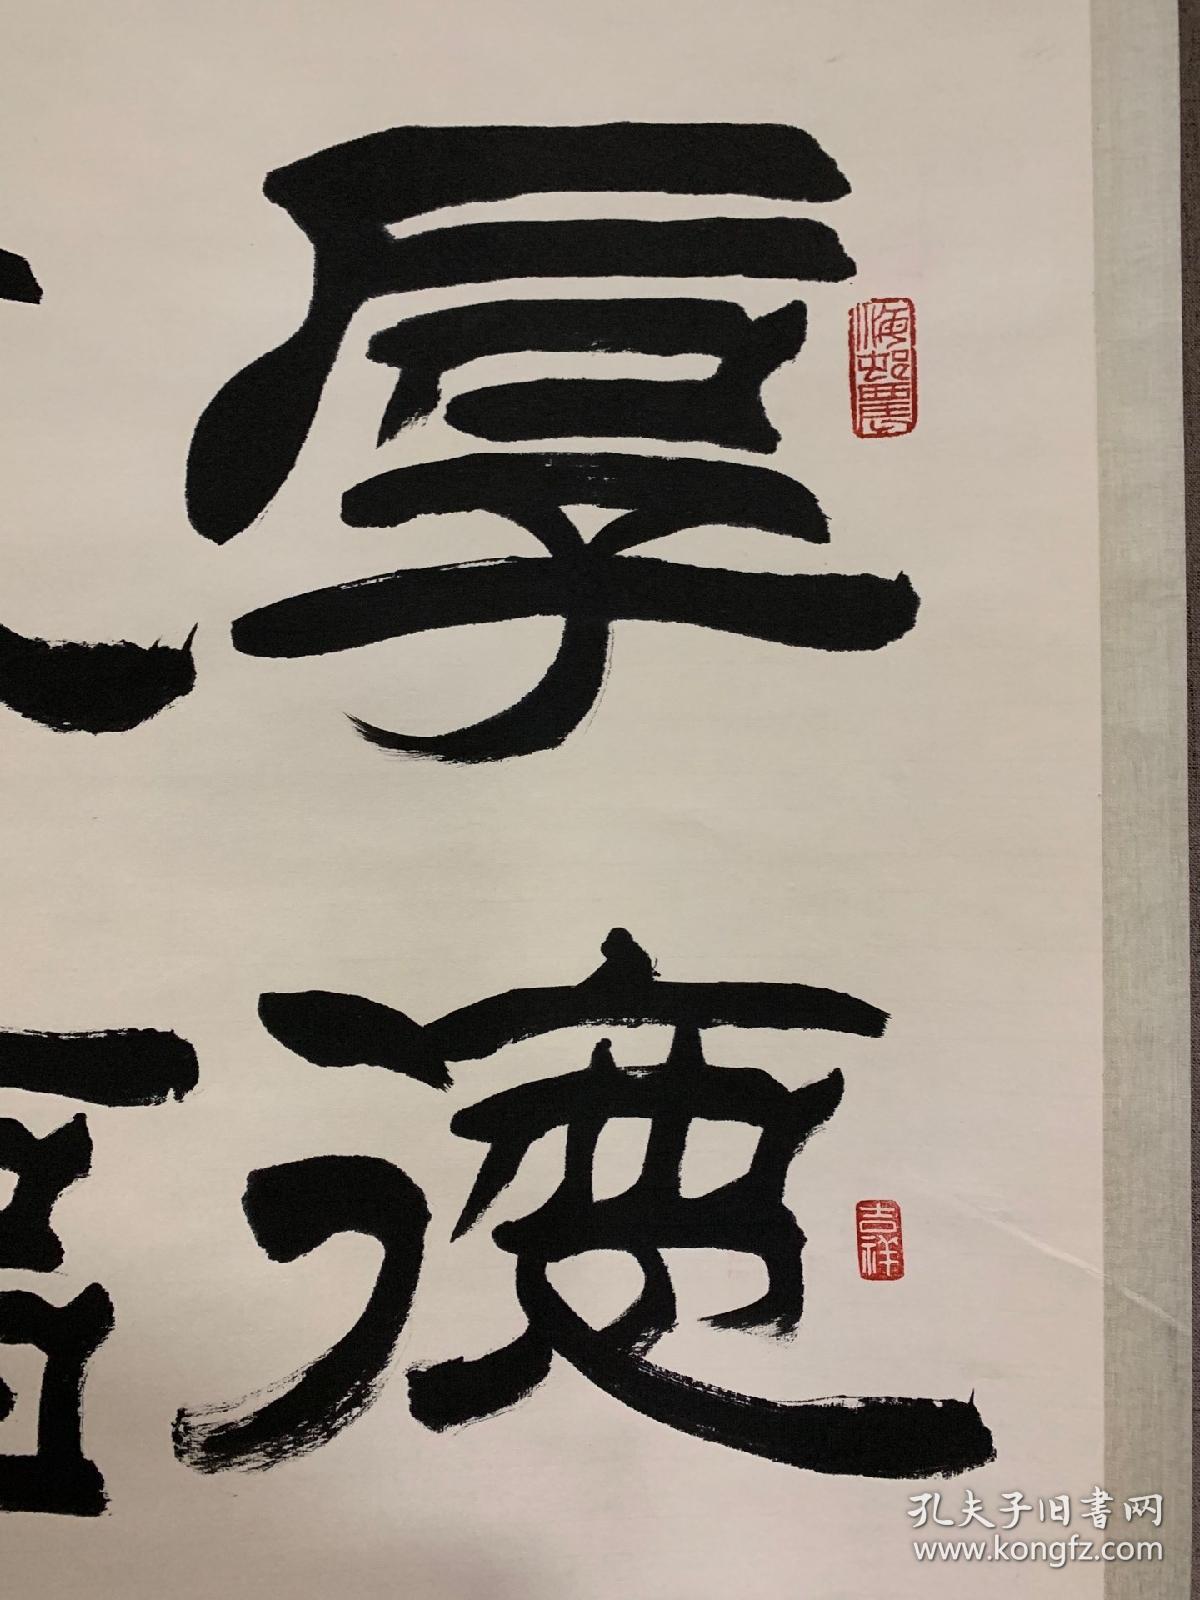 厚德
吉祥
孔夫子旧書网
www.kongfz.com